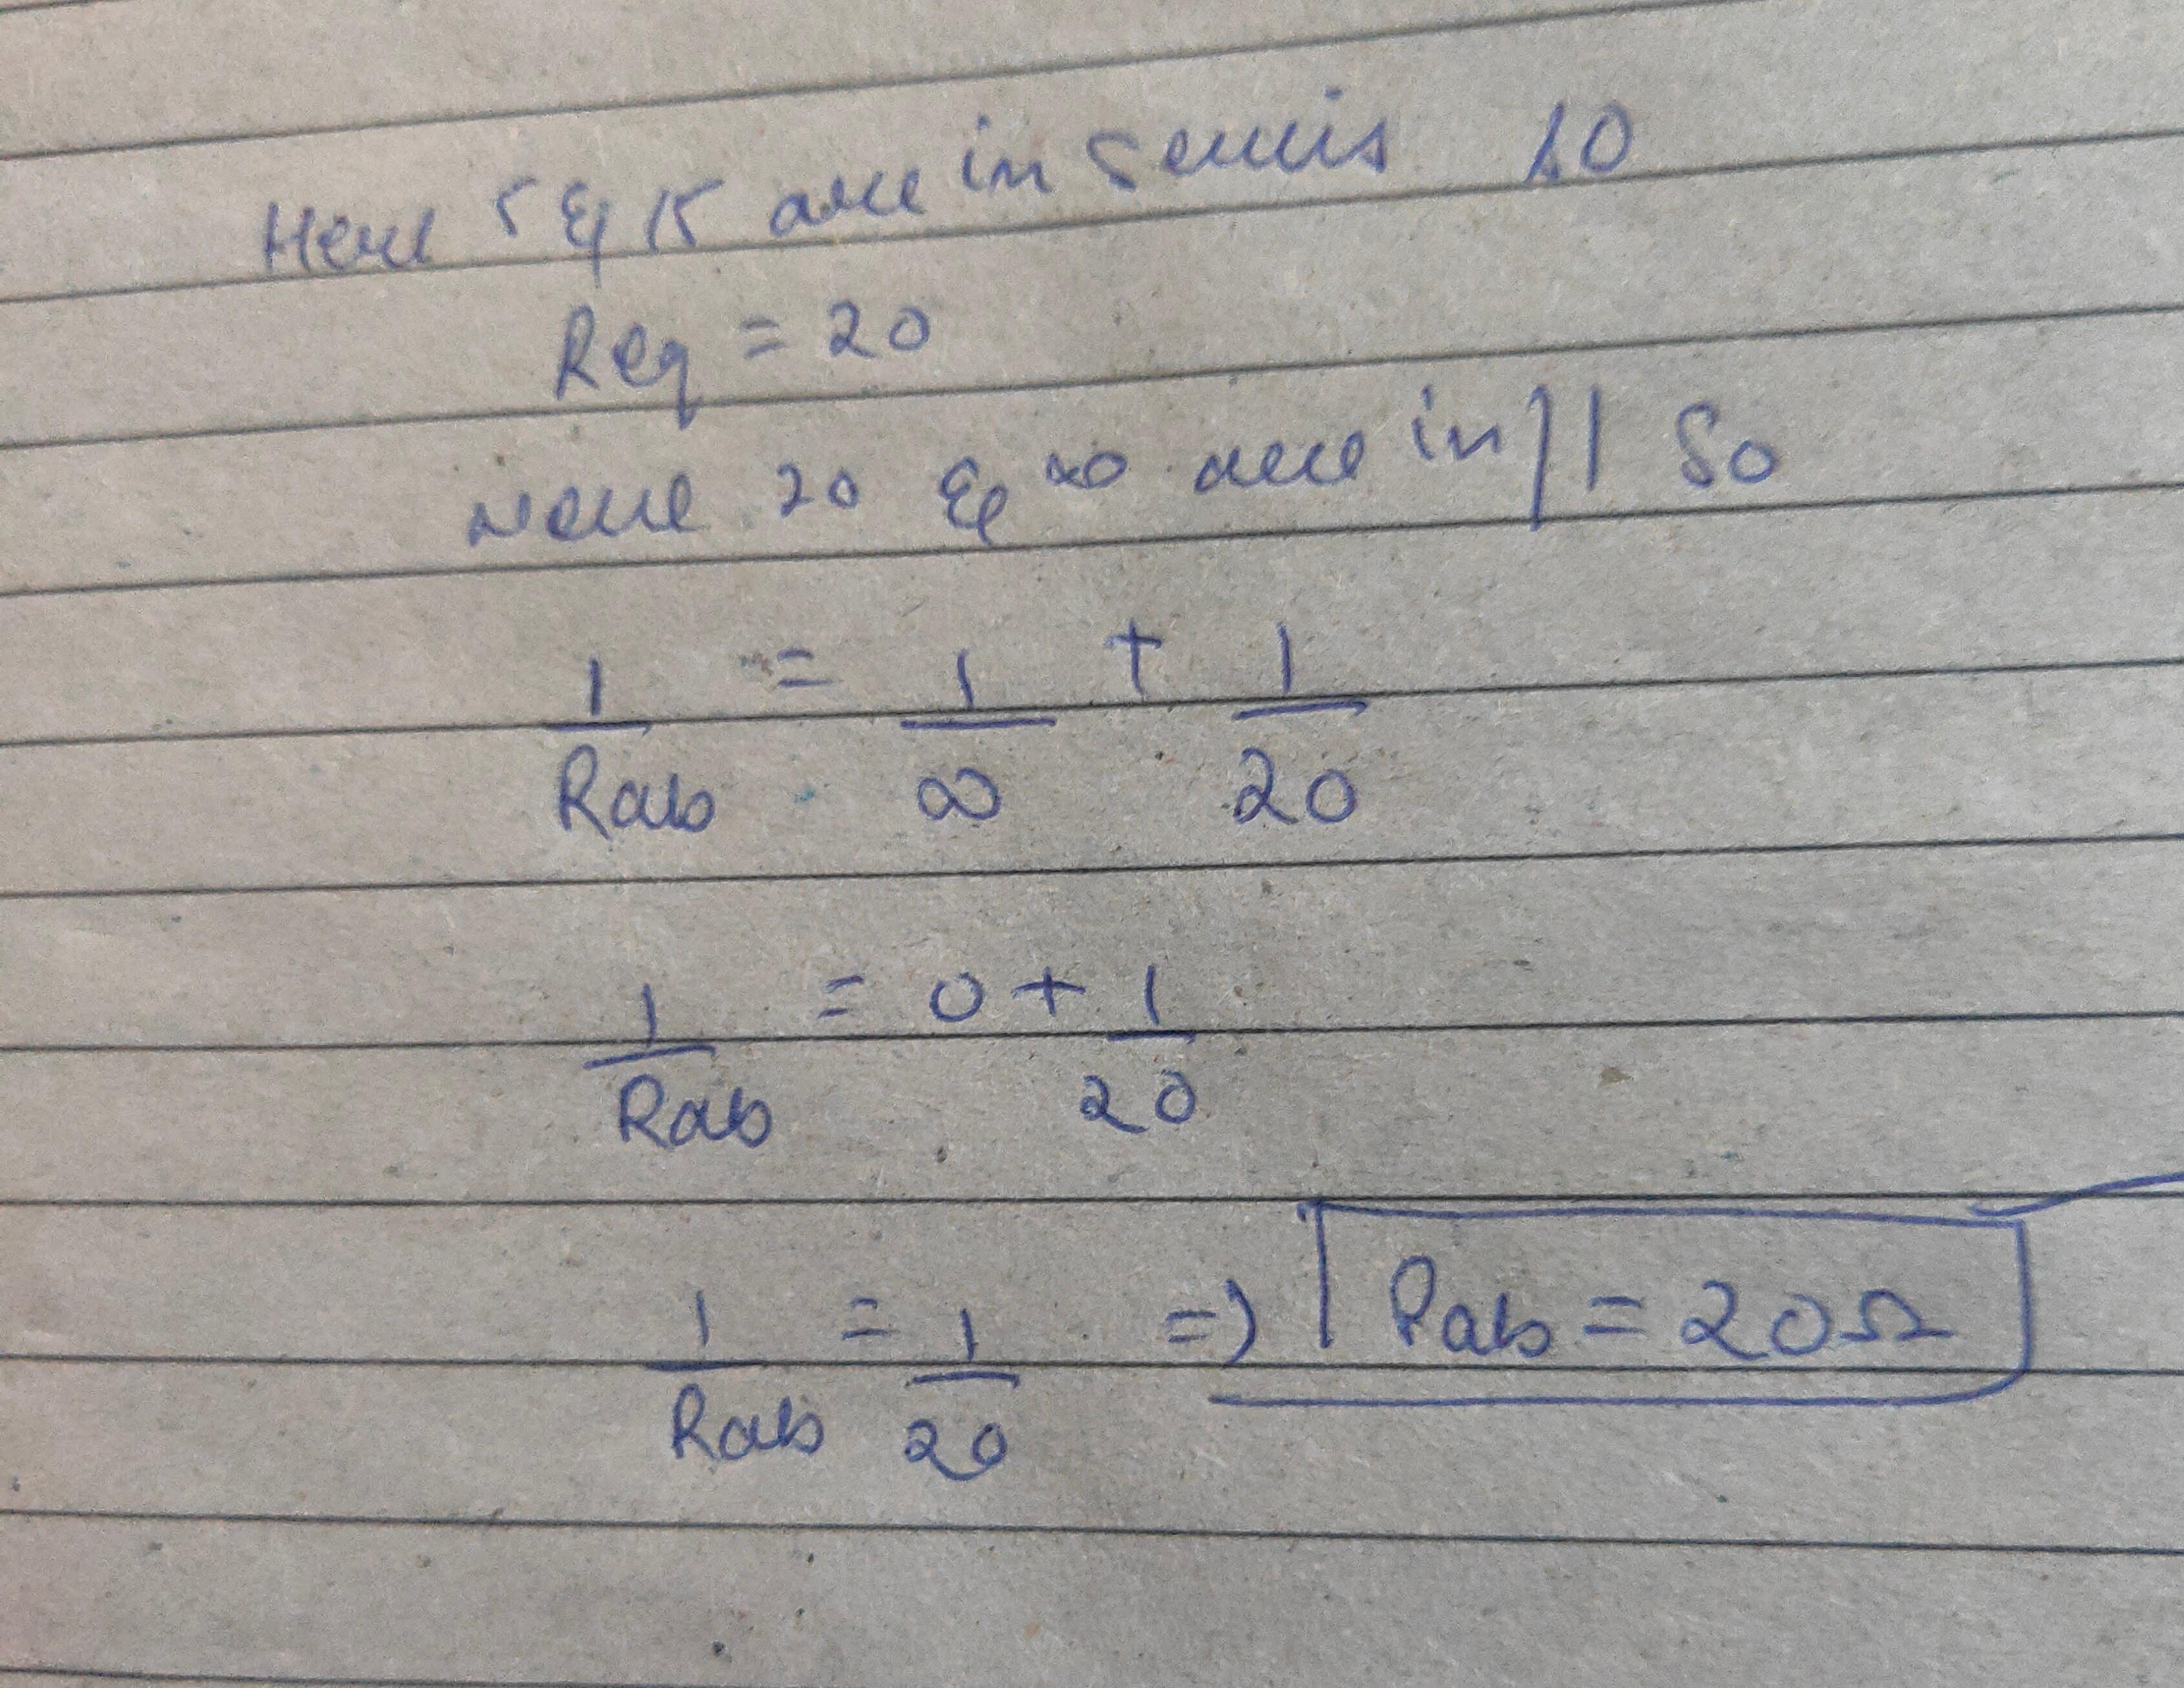 Here 5 & 15 are in series so
Req = 20
Now 20 & ∞ are in || So
1/Rab = 1/∞ + 1/20
1/Rab = 0 + 1/20
1/Rab = 1/20 => Rab = 20Ω